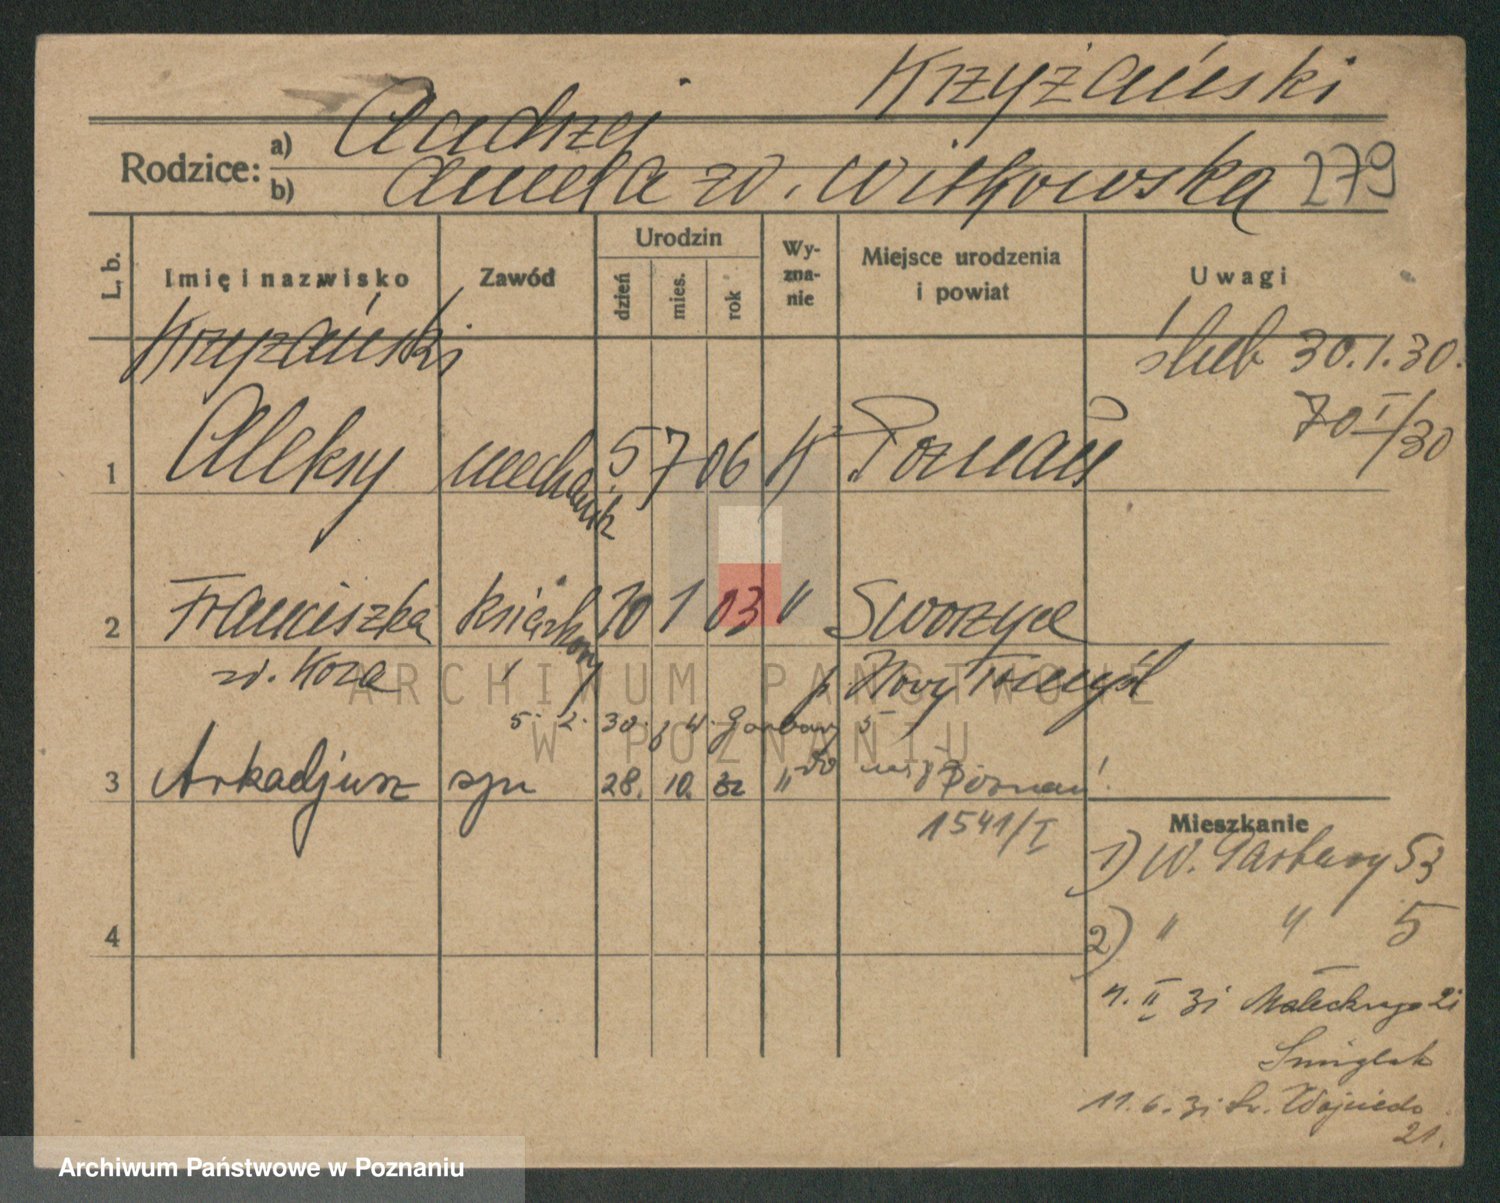 Krzyżański
Rodzice: a) Andrzej
b) Aniela zd. Witkowska 279
L. b. Imię i nazwisko Zawód Urodzin dzień mies. rok Wyznanie Miejsce urodzenia i powiat Uwagi
Krzyżański ślub 30.1.30.
70 I/30
1 Aleksy mechanik 5 7 06 K Poznań
2 Franciszka książkowy 10 1 03 " Sworzyce
zd. Koza p. Nowy Tomyśl
5. 2. 30. W. Garbary 5
3 Arkadjusz syn 28. 10. 32 " Poznań
1541/I
Mieszkanie
1) W. Garbary 53
4
2) " " 5
4. II 31 Małeckiego 21
Śmiglak
11. 6. 31 Św. Wojciech
21.
ARCHIWUM PAŃSTWOWE
W POZNANIU
Archiwum Państwowe w Poznaniu